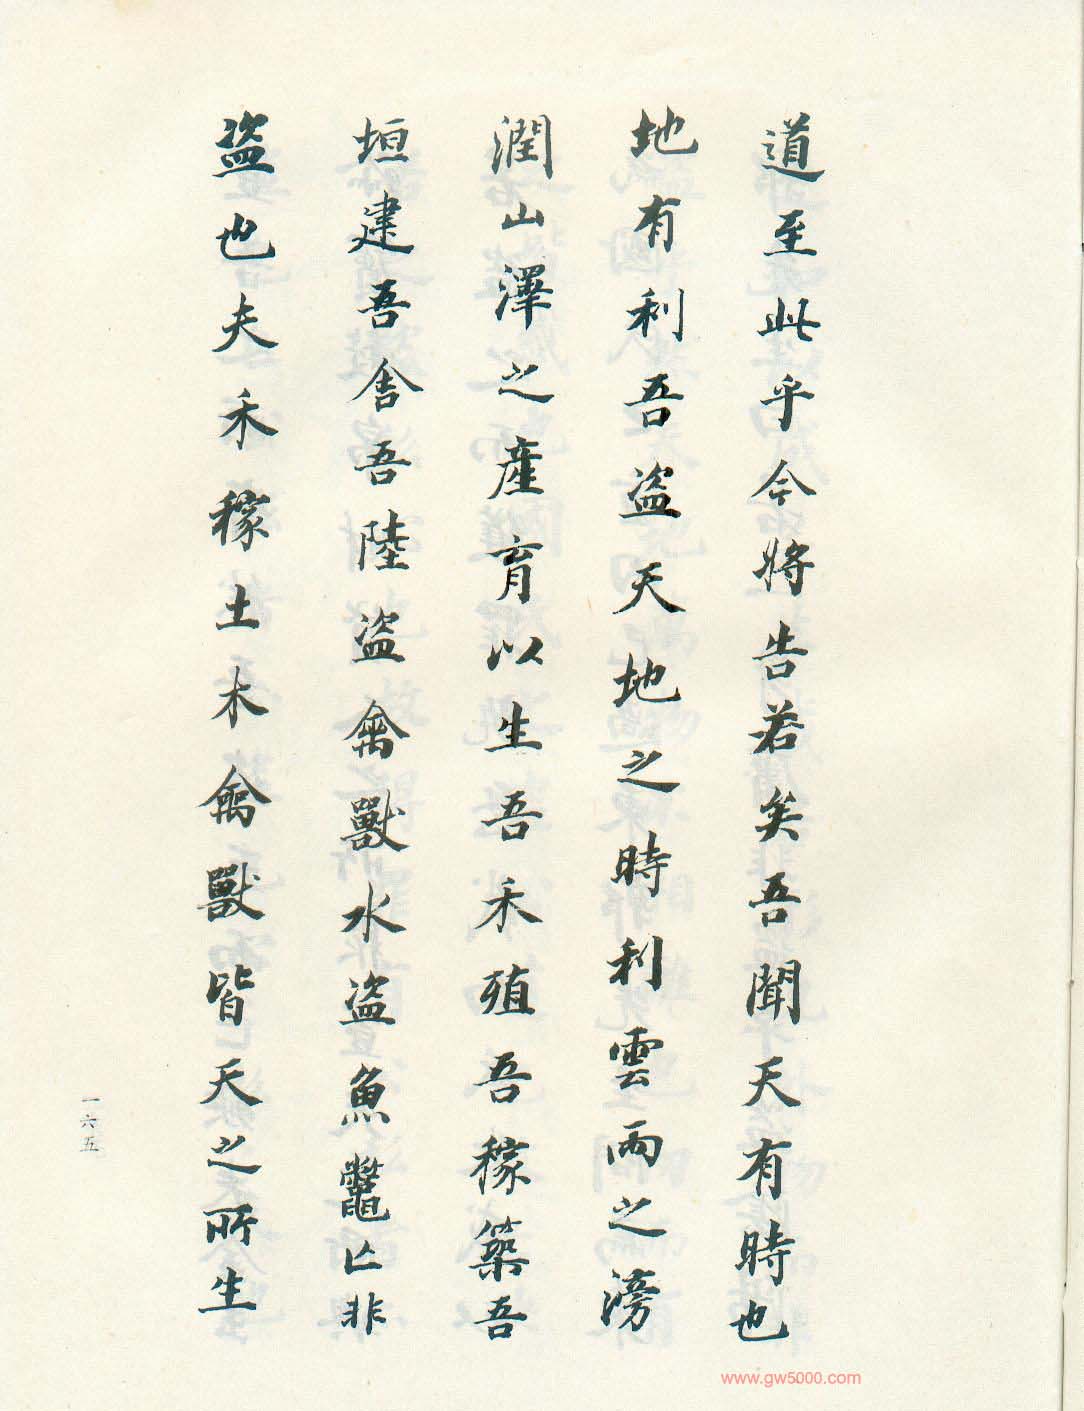 道至此乎今將告若矣吾聞天有時也
地有利吾盜天地之時利雲雨之滂
潤山澤之產育以生吾禾殖吾稼築吾
垣建吾舍吾陸盜禽獸水盜魚鼈亡非
盜也夫禾稼土木禽獸皆天之所生
一六五
www.gw5000.com